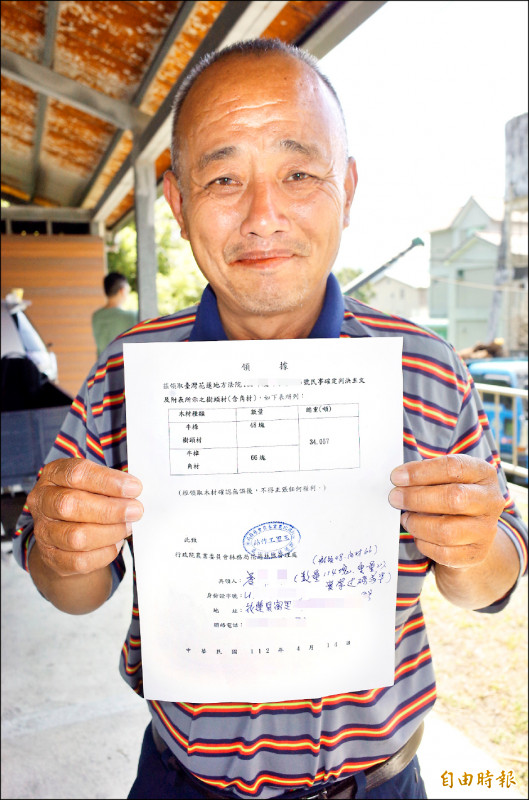 領據
茲領取臺灣花蓮地方法院 號民事確定判決主文
及附表所示之樹頭材(含角材)，如下表所列：
木材種類 數量 總重(噸)
牛樟
樹頭材 48塊
34.007
牛樟
角材 66塊
(經領取木材確認無誤後，不得主張任何權利。)
此致
行政院農業委員會林務局花蓮林區管理處
具領人：
(數量114塊、重量以
身分證字號：U
地 址： 花蓮縣富里
聯絡電話：
中華民國 112 年 4 月 14 日
自由時報